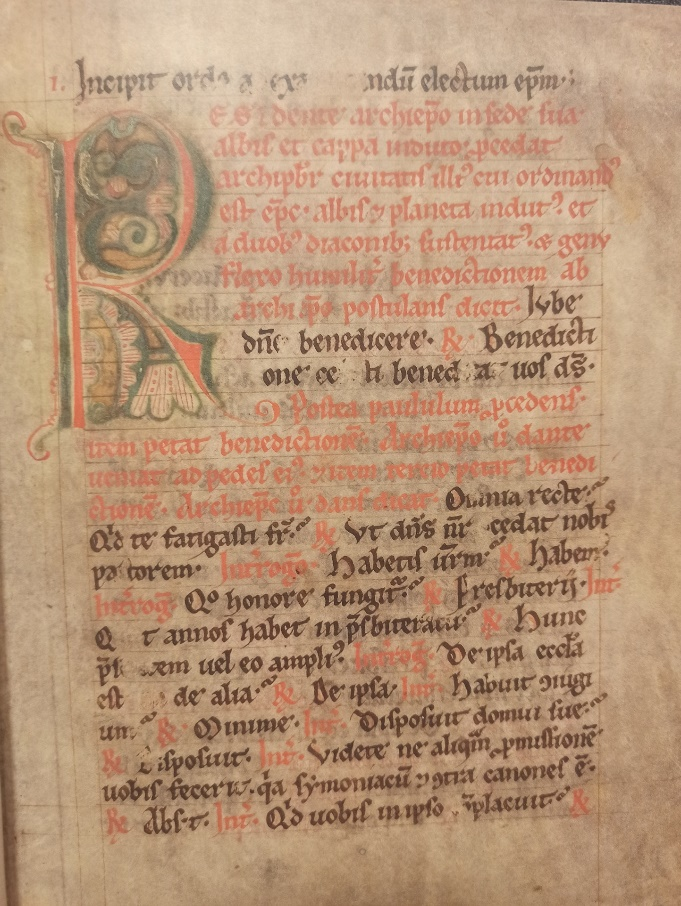 1. Incipit ordo a exa ndū electum ep̄m·
RESIdente archiep̄o in sede sua
albis et cappa induto· p̱cedat
archipb̄r ciuitatis illiꝰ cui ordinandꝰ
est ep̄c· albis ⁊ planeta indutꝰ· et
a duobꝰ diaconibꝫ sustentatꝰ· & genu
flexo humilit̄ benedictionem ab
archi ep̄o postulans dicit· Iube
dn̄e benedicere· ℟ Benedicti
one ce ti bened a uos ds̄·
Postea paululum p̱cedens·
item petat benedictionē· Archiep̄o ū dante
ueniat ad pedes eiꝰ· ⁊ item tercio petat benedi
ctionē· Archiep̄c ū dans dicat· Omnia recte·
Qd̄ te fatigasti fr̄· ℟ Vt dn̄s nr̄ cedat nobis
pastorem· Int̄roḡ· Habetis ūrm· ℟ Habem·
Int̄roḡ· Qo honore fungit̄· ℟ Presbiterij· Int̄·
Q t annos habet in p̄sbiteratu· ℟ Hunc
p̄s em uel eo ampliꝰ· Int̄roḡ· De ipsa eccl̄a
est de alia· ℟ De ipsa· Int̄· Habuit ꝯiugi
um· ℟ Minime· Int̄· Disposuit domui sue·
℟ Disposuit· Int̄· Videte ne aliqm̄ p̱missionē
uobis fecerit· q̄a symoniacū ⁊ ꝯtra canones ē·
℟ Absit· Int̄· Qd̄ uobis in ipso ꝯplacuit· ℟